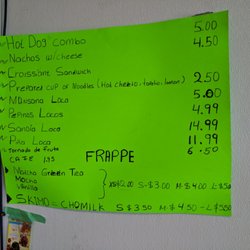 Hot Dog combo 5.00
Nachos w/cheese 4.50
Croissant Sandwich
Prepared cup of Noodles (Hot cheeto, tostito, lemon) 2.50
Manzana Loca 5.00
Pepinos Locos 4.99
Sandia Loca 14.99
Piña Loca 11.99
Tornado de Fruta 6.50
CAFE 1.95
FRAPPE
Matcha Green Tea
Mocha
Vanilla
S-$3.00 M-$4.00 L-$5.50
SKIMO = CHOMILK S $3.50 M-$4.50 - L-$5.50